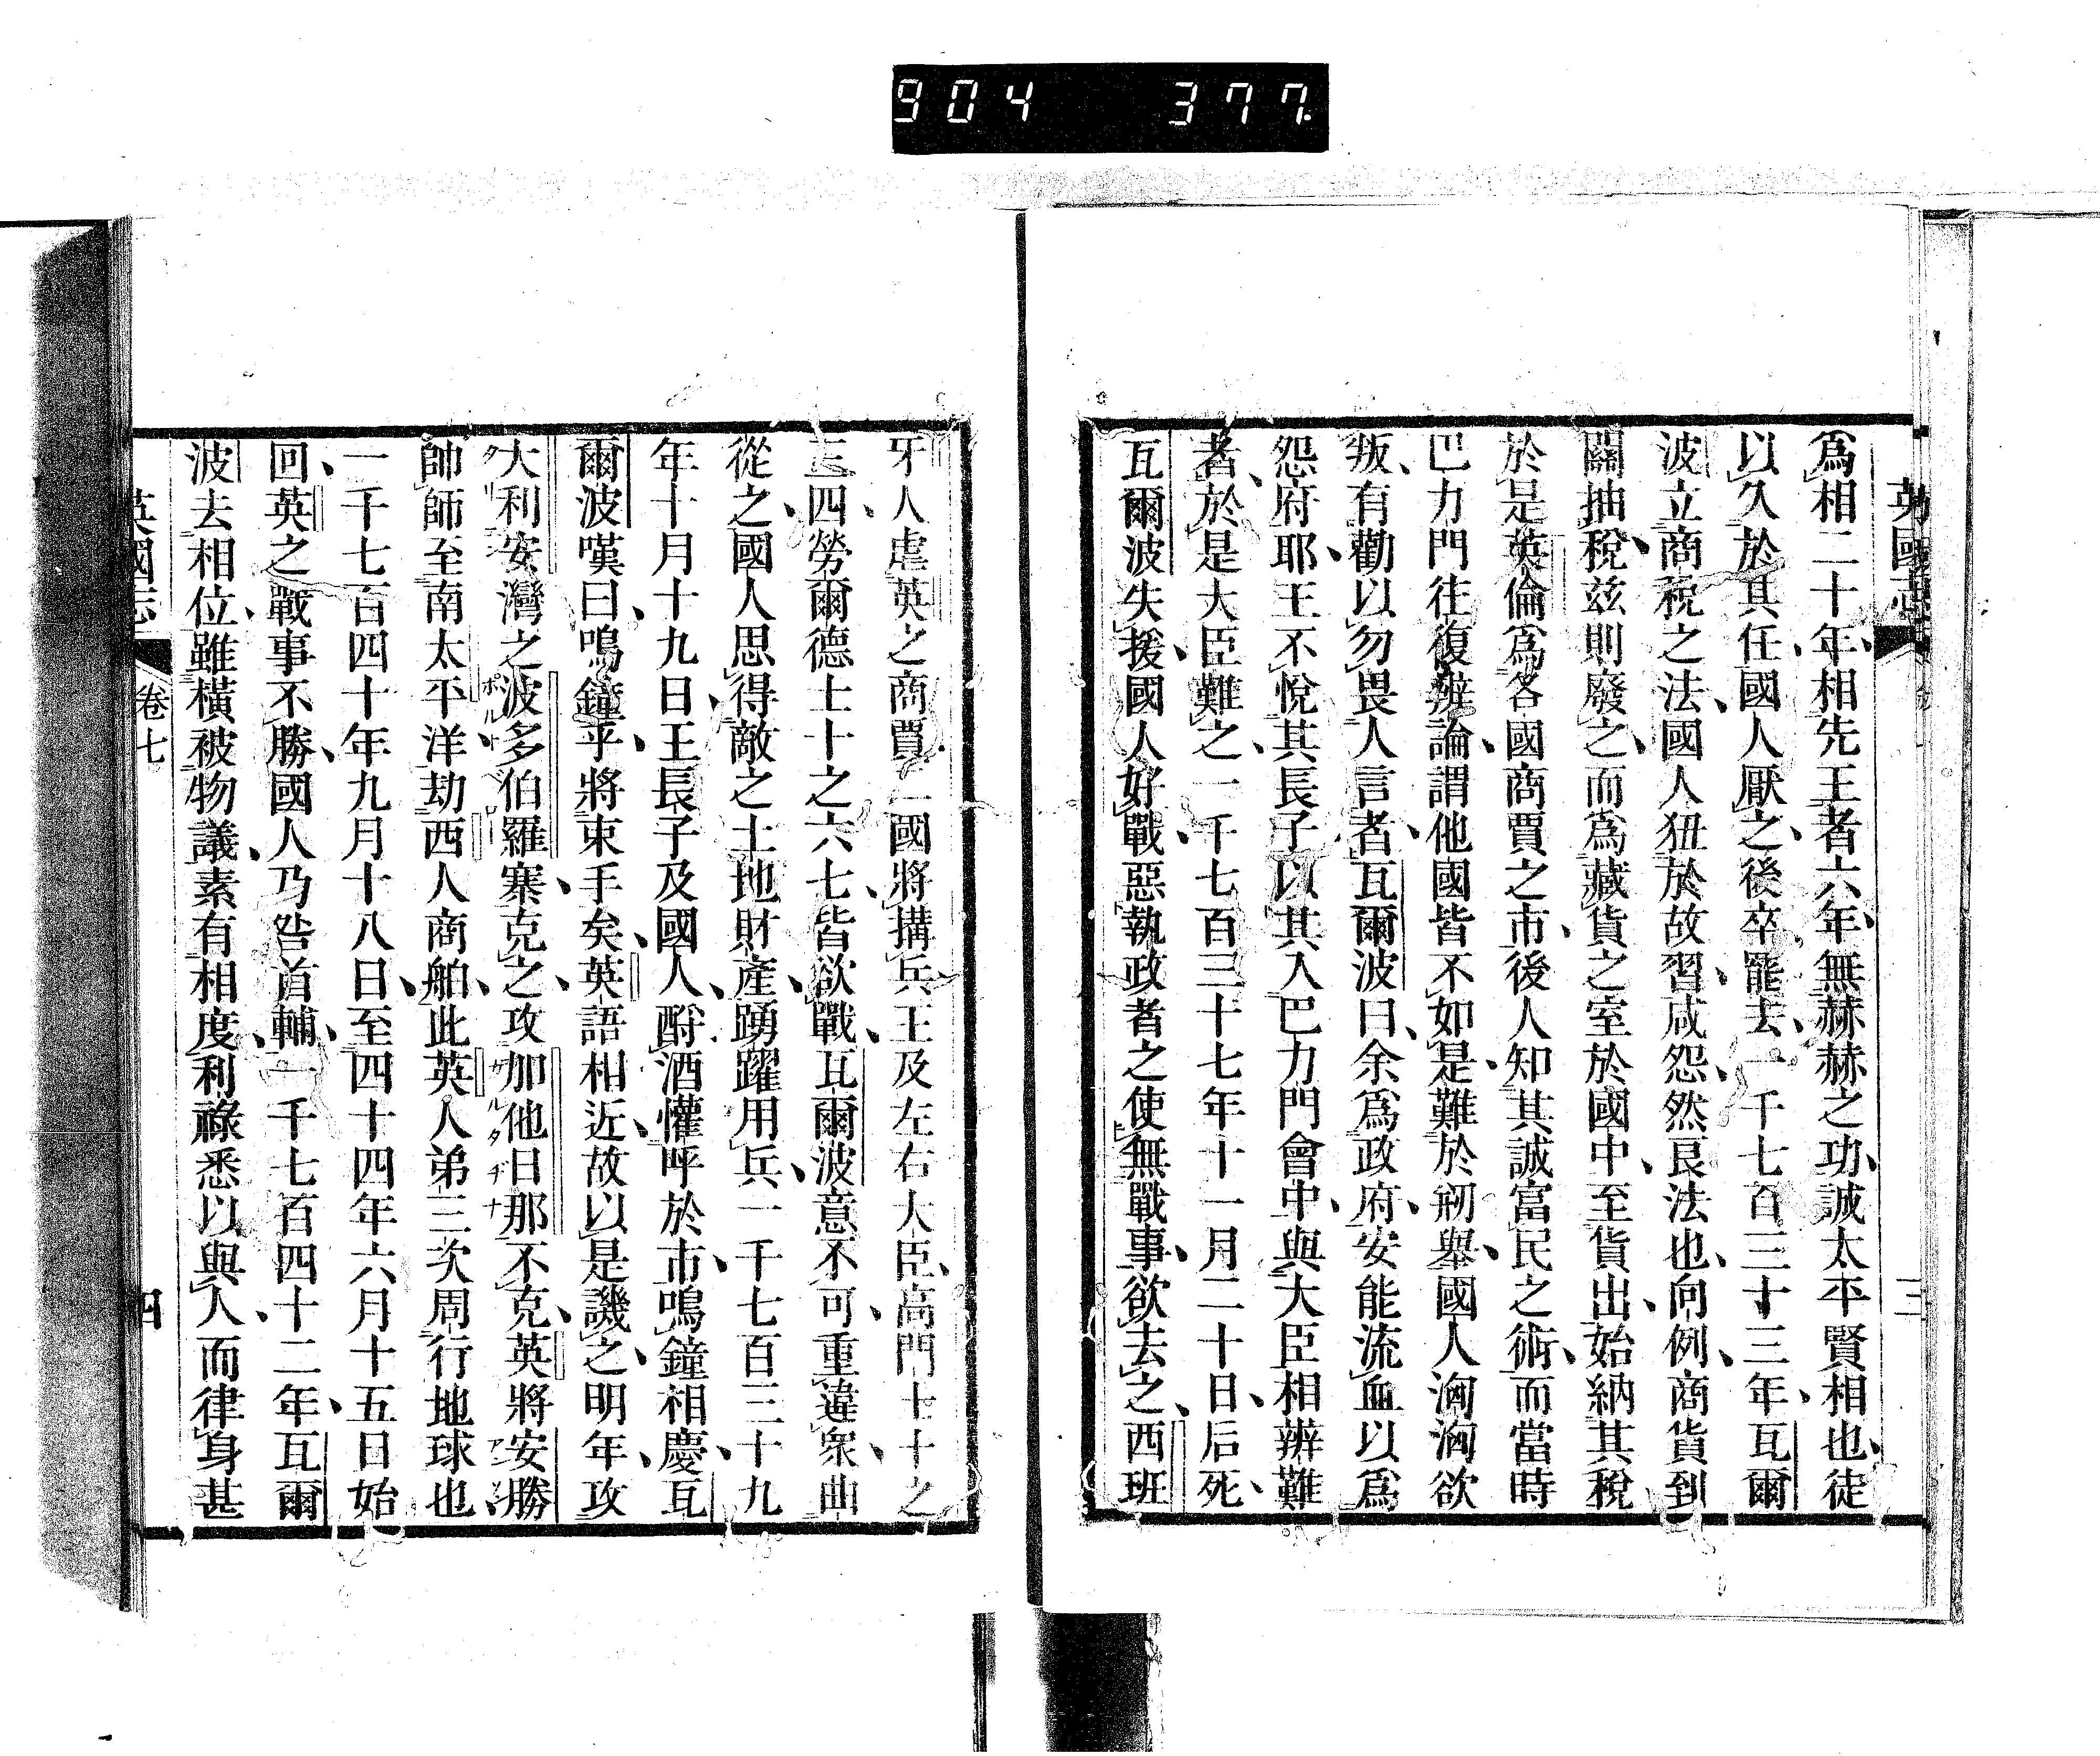 904 377
英國志
爲相二十年、相先王者六年、無赫赫之功、誠太平賢相也、徒
以久於其任國人厭之、後卒罷去、一千七百三十三年、瓦爾
波立商稅之法、國人狃於故習、咸怨、然良法也、向例、商貨到
關抽稅、兹則廢之、而爲藏貨之室於國中、至貨出、始納其稅
於是英倫爲各國商賈之市、後人知其誠富民之術、而當時
巴力門往復辨論、謂他國皆不如是、難於剏舉、國人洶洶欲
叛、有勸以勿畏人言者、瓦爾波曰、余爲政府、安能流血以爲
怨府耶、王不悅其長子以其入巴力門會中、與大臣相辨難
者、於是大臣難之、一千七百三十七年十一月二十日、后死、
瓦爾波失援、國人好戰、惡執政者之使無戰事、欲去之、西班
三
牙人虐英之商賈二國將搆兵王及左右大臣、高門士十之
三、四勞爾德士十之六七、皆欲戰、瓦爾波意不可、重違衆、曲
從之、國人思得敵之土地財產、踴躍用兵、一千七百三十九
年十月十九日、王長子及國人、酹酒懽呼於市、鳴鐘相慶、瓦
爾波嘆曰、嗚鐘乎、將束手矣、英語相近、故以是譏之、明年、攻
大利安灣之波多伯羅寨、克之、攻加他日那不克、英將安勝
帥師至南太平洋、劫西人商舶、此英人弟三次周行地球也、
一千七百四十年九月十八日、至四十四年六月十五日始
回、英之戰事不勝、國人乃咎首輔、一千七百四十二年、瓦爾
波去相位、雖橫被物議、素有相度、利祿悉以與人、而律身甚
英國志
卷七
四